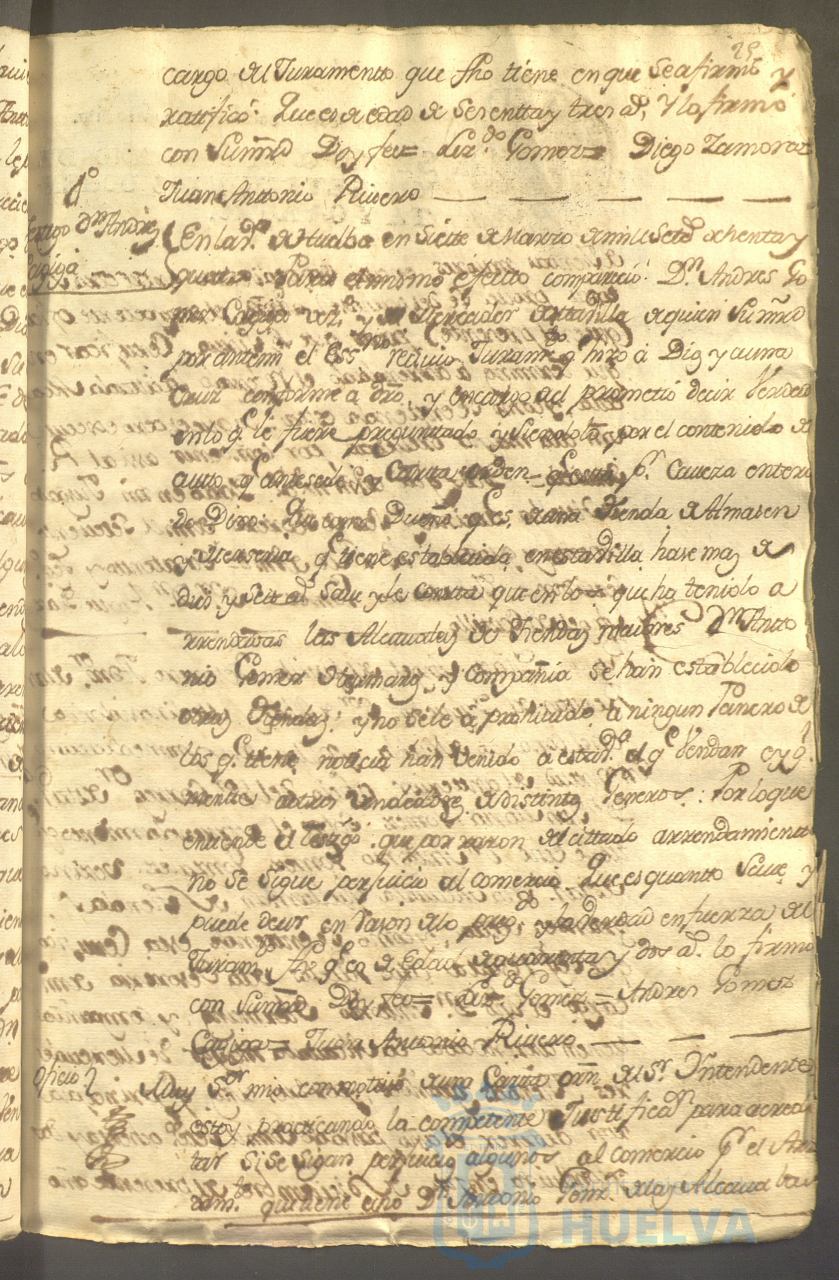 25
cargo del Juramento que fho tiene en que se afirmó y
ratificó: Que es de edad de sesentta y tres a.ˢ, y lo firmó
con Sumrd Doy fee= Liz.ᵈᵒ Gomez= Diego Zamora=
Juan Antonio Rivero
4º
Testigo Dⁿ Andres
En la v.ª de Huelba en Siette de Marzo de mill Setᵒˢ ochenta y
quatro Para el mismo efectto comparecio Dⁿ Andres Go
mez vez.º y Mercader de esta Villa de quien Sumrd
por antemi el Essⁿᵒ recivio Juramᵗᵒ q hizo á Dios y a una
Cruz conforme a dro, y encargo del prometió decir Verdad
en lo q.ᵉ le fuere preguntado y siendolo por el contenido de
autto q.ᵉ antesede y Cartta orden q.ᵉ esttá p.ʳ Caveza entera
do Dixo: Que como Dueño q.ᵉ es de una Tienda de Almasen
y q.ᵉ tiene establecida en esta Villa hase mas de
dies y seis a.ˢ save y le consta que en lo que ha tenido a
rrendadas las Alcavalas de Tiendas maiores Dⁿ Anto
nio Gomez y Compañia se han establecido
otras Tiendas, y no se le á prohivido á ningun Penero de
los q.ᵉ tiene noticia han venido a esta V.ª el q.ᵉ Vendan
mente de distintos Generos: Por lo que
entiende el testigo que por razon del cittado arrendamiento
no se sigue perjuicio al comercio Que es quantto save y
puede decir en razon de lo preg.ᵈᵒ y la Verdad en fuerza del
Juram.ᵗᵒ fho q.ᵉ es de Edad de quarenta y dos a.ˢ lo firmó
con Sumrd Doy feo= Liz.ᵈᵒ Gomez= Andres Gomez
Juan Antonio Rivero
Oficio
Muy S.ᵒʳ mio con motivo de una Cartta orn del S.ʳ Yntendente
estoy practicando la competente Justificaⁿ para acredi
tar si se sigan perjuicios algunos al comercio p.ʳ el Arren
dam.ᵗᵒ que tiene echo Dⁿ Antonio Gomz de las Alcavalas
HUELVA